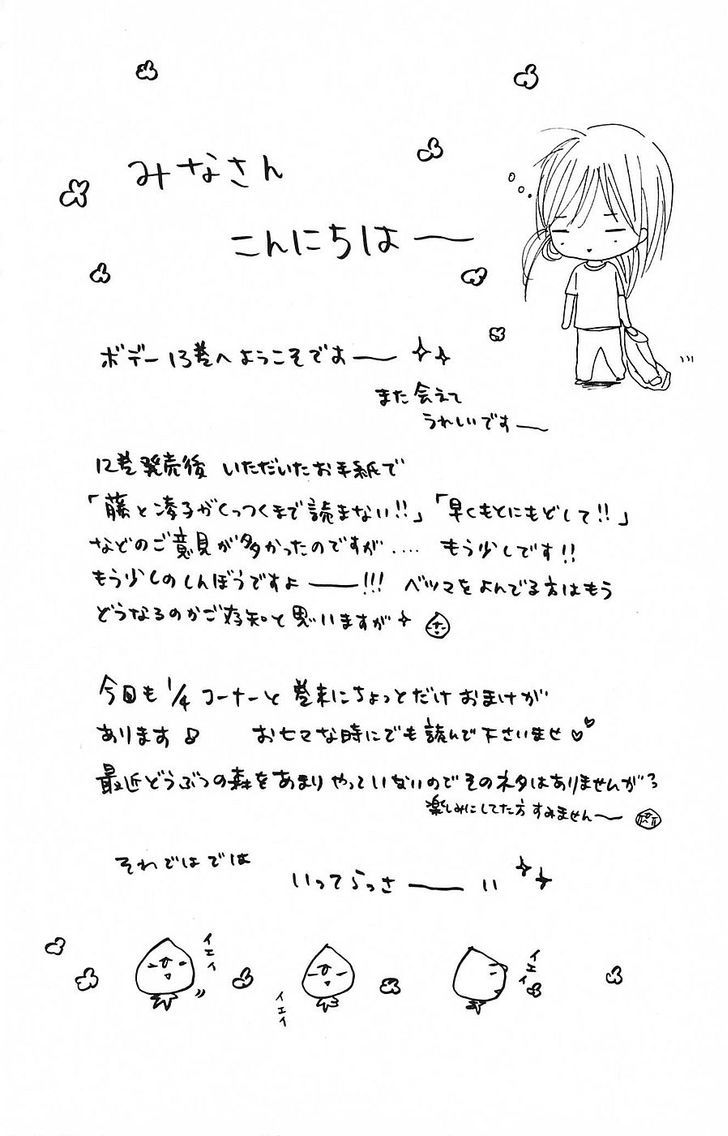 みなさん
こんにちはー
ボデー13巻へようこそですー
また会えて
うれしいですー
12巻発売後 いただいたお手紙で
「藤と凌子がくっつくまで読まない!!」「早くもとにもどして!!」
などのご意見が多かったのですが‥‥ もう少しです!!
もう少しのしんぼうですよー!!! ベツマをよんでる方はもう
どうなるのかご存知と思いますが
今回も1/4コーナーと巻末にちょっとだけおまけが
あります♪ おヒマな時にでも読んで下さいませ♡♡
最近どうぶつの森をあまりやっていないのでそのネタはありませんが
楽しみにしてた方すみませんー
それではでは
いってらっさー!!
イエイ
イエイ
イエイ